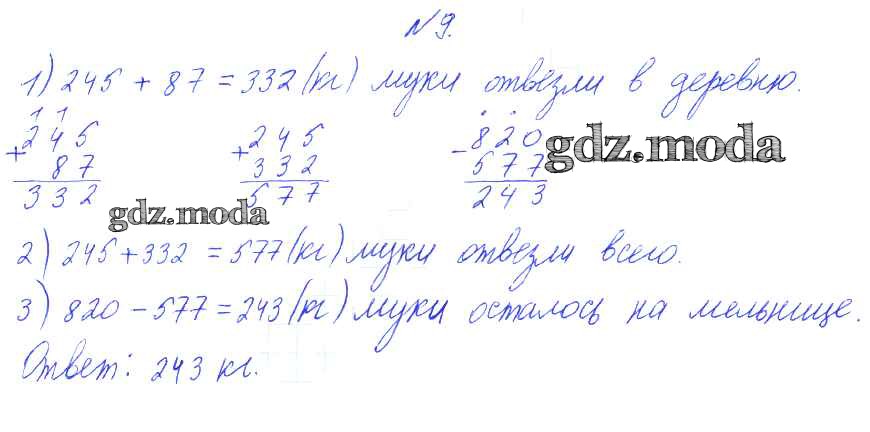 №9.
1) 245 + 87 = 332 (кг) муки отвезли в деревню.
1 1
+ 245
87
332
+ 245
332
577
- 820
577
243
gdz.moda
gdz.moda
2) 245 + 332 = 577 (кг) муки отвезли всего.
3) 820 - 577 = 243 (кг) муки осталось на мельнице.
Ответ: 243 кг.